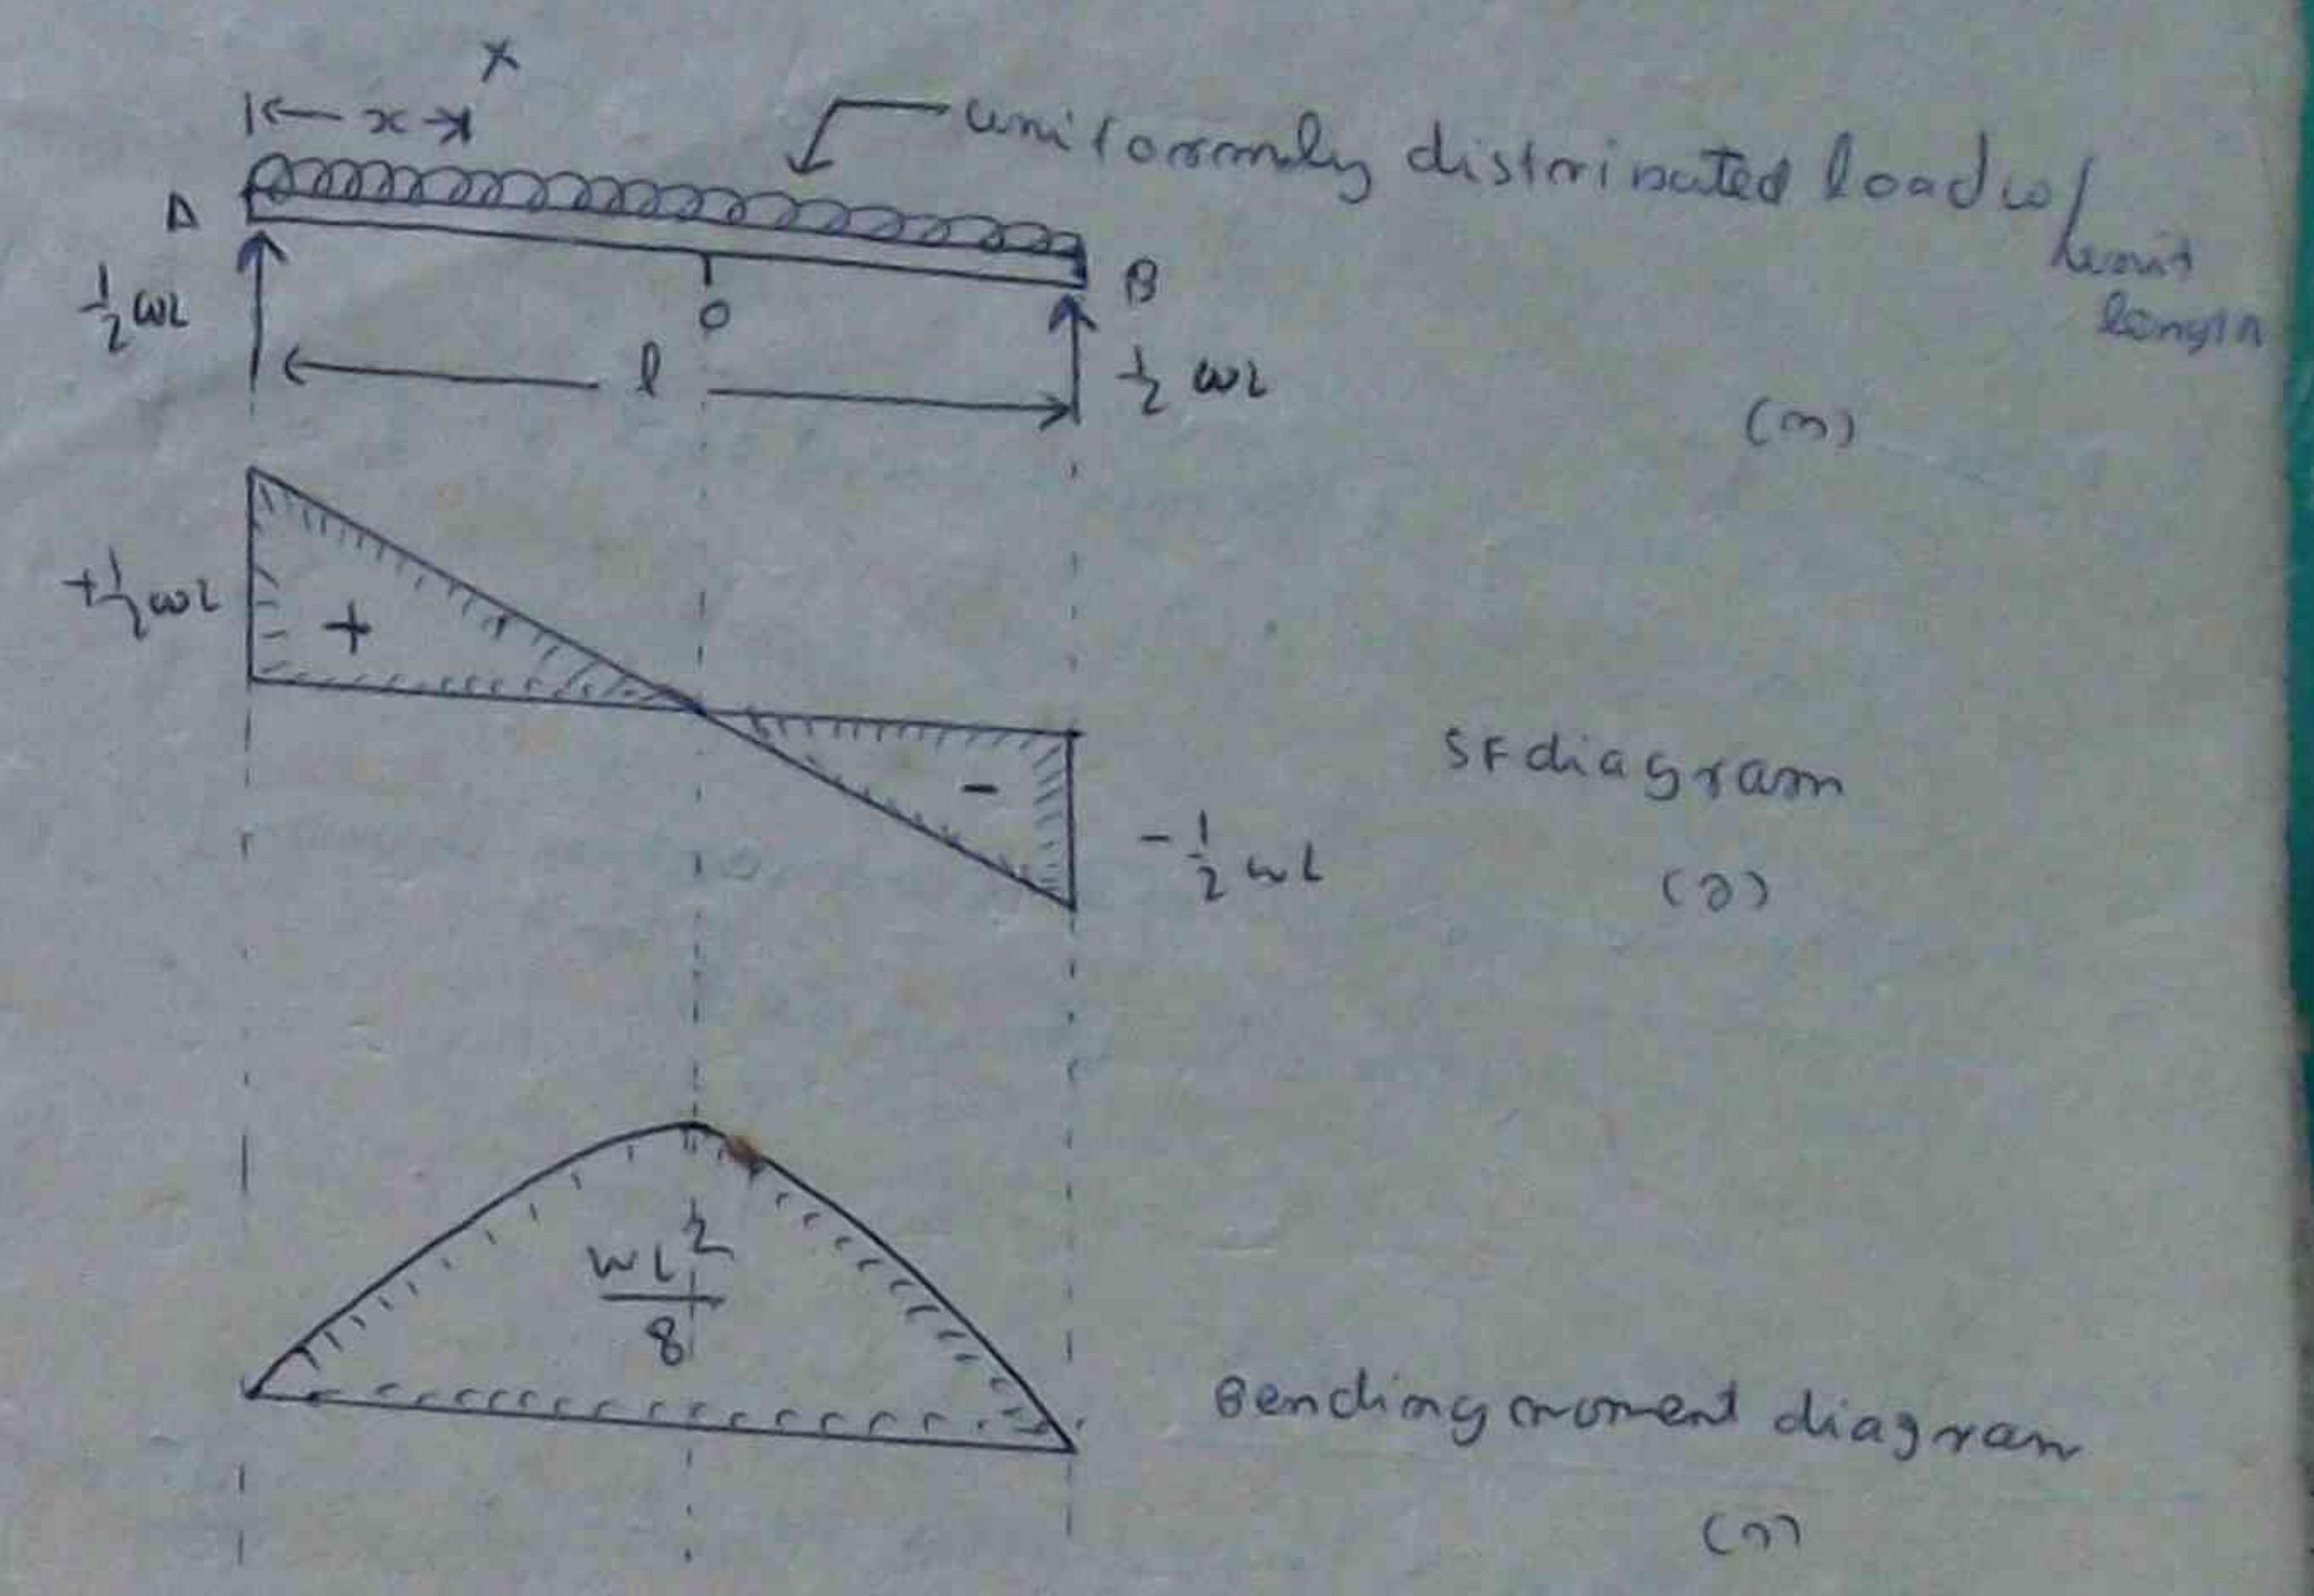 x
x
uniformly distributed load w/
unit
length
A
B
½ωL
O
l
½ ωL
+½ωL
+
SF diagram
-
-½ωL
WL²/8
Bending moment diagram